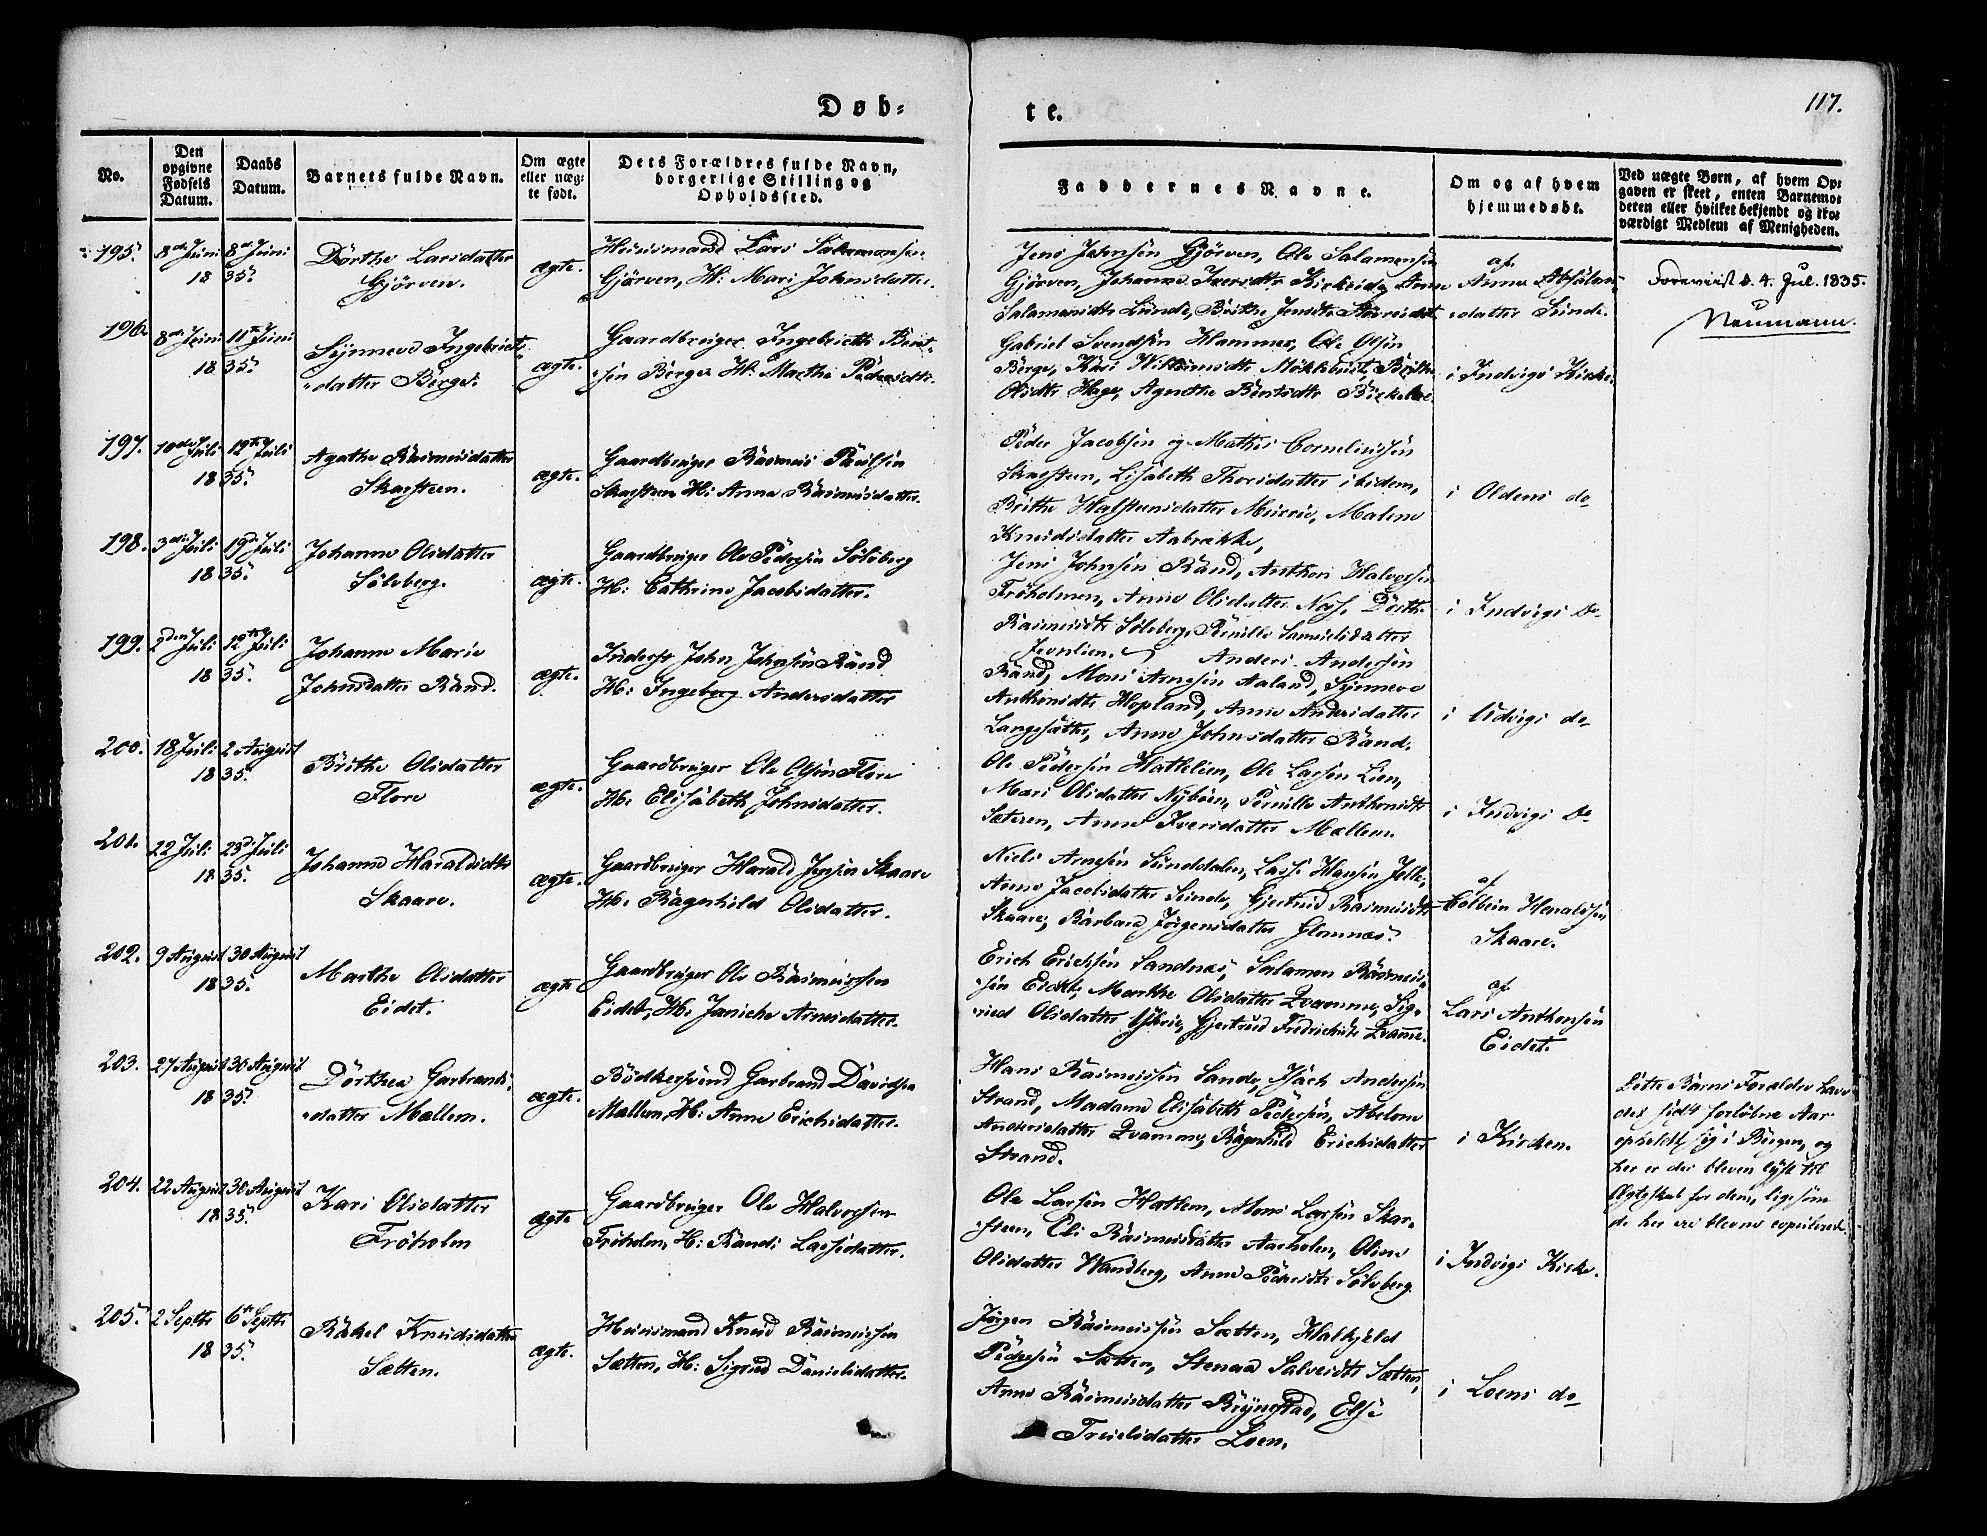 Døb-
te.
117.
No.
Den opgivne Fødsels Datum.
Daabs Datum.
Barnets fulde Navn.
Om ægte eller uæg- te født.
Dets Forældres fulde Navn, borgerlige Stilling og Opholdssted.
Faddernes Navne.
Om og af hvem hjemmedøbt.
Ved uægte Børn, af hvem Op- gaven er skeet, enten Barnemo- deren eller hvilket bekjendt og tro- værdigt Medlem af Menigheden.
195. 8de Juni 8de Juni
1835.
Dörthe Larsdatter
Gjörven.
ægte.
Huusmand Lars Salamonsen
Gjörven, H: Mari Johnsdatter.
Jens Jensen Gjörven, Ole Salamonsen
Gjörven, Johanne Iversdtr Anne
Salamonsdtr Sunde, Brithe Jensdtr
af
Anna Absalons-
datter Sunde.
Foreviist d. 4. Jul. 1835.
Neumann.
196. 8de Juni 11te Juni
1835.
Synneve Ingebrigts-
datter Berge.
ægte.
Gaardbruger Ingebrigth Bent-
sen Berge H: Marthe Pedersdtr.
Gabriel Svendsen Hammer, Ole Olsen
Berge, Kari Mökkebust, Brithe
Olsdtr Hage, Agnethe Bentsdtr
i Indvigs Kirke.
197. 10de Juli 12te Juli
1835.
Agathe Rasmusdatter
Skarsteen.
ægte.
Gaardbruger Rasmus Paulsen
Skarsteen, H: Anna Rasmusdatter.
Peder Jacobsen og Mathis Corneliussen
Skarsteen, Lisabeth Thorsdatter ibidem,
Brithe Halsteensdatter Muurie, Malene
Knudsdatter Aabrekke,
i Oldens do
198. 3die Juli 19de Juli
1835.
Johanne Olsdatter
Sölvberg.
ægte.
Gaardbruger Ole Pedersen Sölvberg
H: Cathrine Jacobsdatter.
Jens Johnsen Rand, Anthon Halvorsen
Fröholmen, Anne Olsdatter Næs, Dorthe
Rasmusdtr Sölvberg, Pernille Samuelsdatter
i Indvigs do
199. 2den Juli 12te Juli
1835.
Johanne Marie
Johnsdatter Rand.
ægte.
Inderst John Johnsen Rand
H: Ingeborg Andersdatter
Anders Andersen
Rand, Mons Arnesen Aaland, Synneve
Anthonsdtr Hopland, Anne Andersdatter
Langesæter, Anne Johnsdatter Rand.
i Udvigs do
200. 18 Juli 2 August
1835.
Brithe Olsdatter
Flore
ægte.
Gaardbruger Ole Olsen Flore
H: Elisabeth Johnsdatter.
Ole Pedersen Hatlelien, Ole Larsen Lien,
Mari Olsdatter Nyböen, Pernille Anthonsdtr
Sæteren, Anne Iversdatter Mællem.
i Indvigs do
201. 22 Juli 23de Juli
1835.
Johanne Haraldsdtr
Skaare.
ægte.
Gaardbruger Harald Jensen Skaare
H: Ragnhild Olsdatter.
Niels Arnesen Sunddalen, Lasse Hansen
Anne Jacobsdatter Sunde, Gjertrud Rasmusdtr
Skaare, Barbara Jörgensdatter Flomnæs.
af
Colbein Haraldsen
Skaare.
202. 9 August 30 August
1835.
Marthe Olsdatter
Eidet.
ægte
Gaardbruger Ole Rasmussen
Eidet, H: Janiche Arnesdatter.
Erich Erichsen Sandnæs, Salamon Rasmus-
sen Eidet, Marthe Olsdatter Qvamme, Sig-
ried Olsdatter Gjertrud Fredrichsdtr Qvamme.
af
Lars Anthonsen
Eidet.
203. 27 August 30 August
1835.
Dörthea Garbrands-
datter Mællem.
ægte.
Bödkersvend Garbrand Davidsen
Mællem, H: Anne Erichsdatter.
Hans Rasmussen Sande, Isach Andersen
Strand, Madame Elisabeth Pedersen, Abelone
Andersdatter Qvamme, Ragnhild Erichsdatter
Strand.
i Kirken.
Dette Barns Forældre have
det sidst forløbne Aar
opholdt sig i Bergen, og
her er der bleven lyst til
Ægteskab for dem, ligesom
de her ere blevne copulerede.
204. 22 August 30 August
1835.
Kari Olsdatter
Fröholm
ægte
Gaardbruger Ole Halvorsen
Fröholm, H: Randi Lassedatter.
Ole Larsen Hatlem, Mons Larsen Skar-
steen, Eli Rasmusdatter Aarholen, Oline
Olsdatter Wandberg, Anne Pedersdtr Sölvberg
i Indvigs Kirke.
205. 2 Septbr 6te Septbr
1835.
Rakel Knudsdatter
Sætten.
ægte.
Huusmand Knud Rasmussen
Sætten, H: Sigrid Danielsdatter.
Jörgen Rasmussen Sætten, Halkjeld
Pedersen Sætten, Stenaa Salvesdtr Sætten,
Anne Rasmusdatter Ryngstad, Else
Truelsdatter Loen.
i Loens do